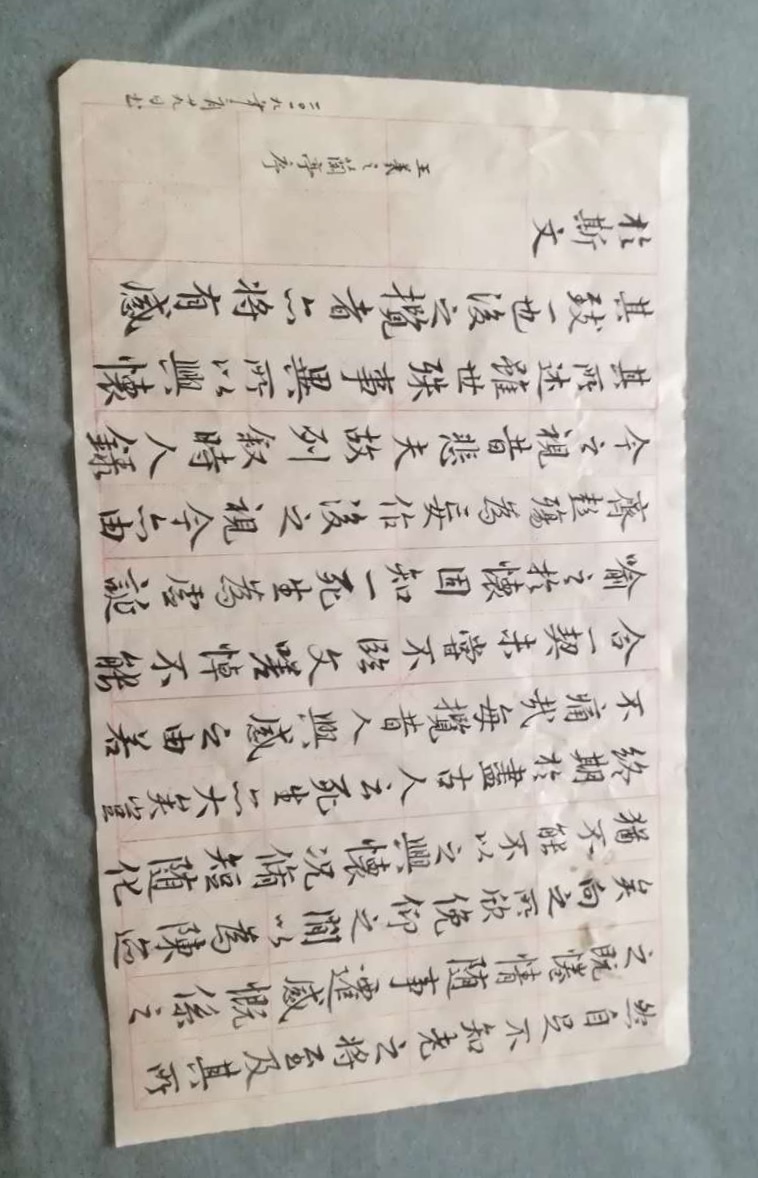 然自足不知老之將至及其所
之既惓情随事遷感慨係之
矣向之所欣俛仰之閒以為陳迹
猶不能不以之興懷況脩短随化
終期於盡古人云死生亦大矣豈
不痛哉每攬昔人興感之由若
合一契未嘗不臨文嗟悼不能
喻之於懷固知一死生為虛誕
齊彭殤為妄作後之視今亦由
今之視昔悲夫故列叙時人錄
其所述雖世殊事異所以興懷
其致一也後之攬者亦將有感
於斯文
王羲之蘭亭序
二〇一九年三月廿九日书